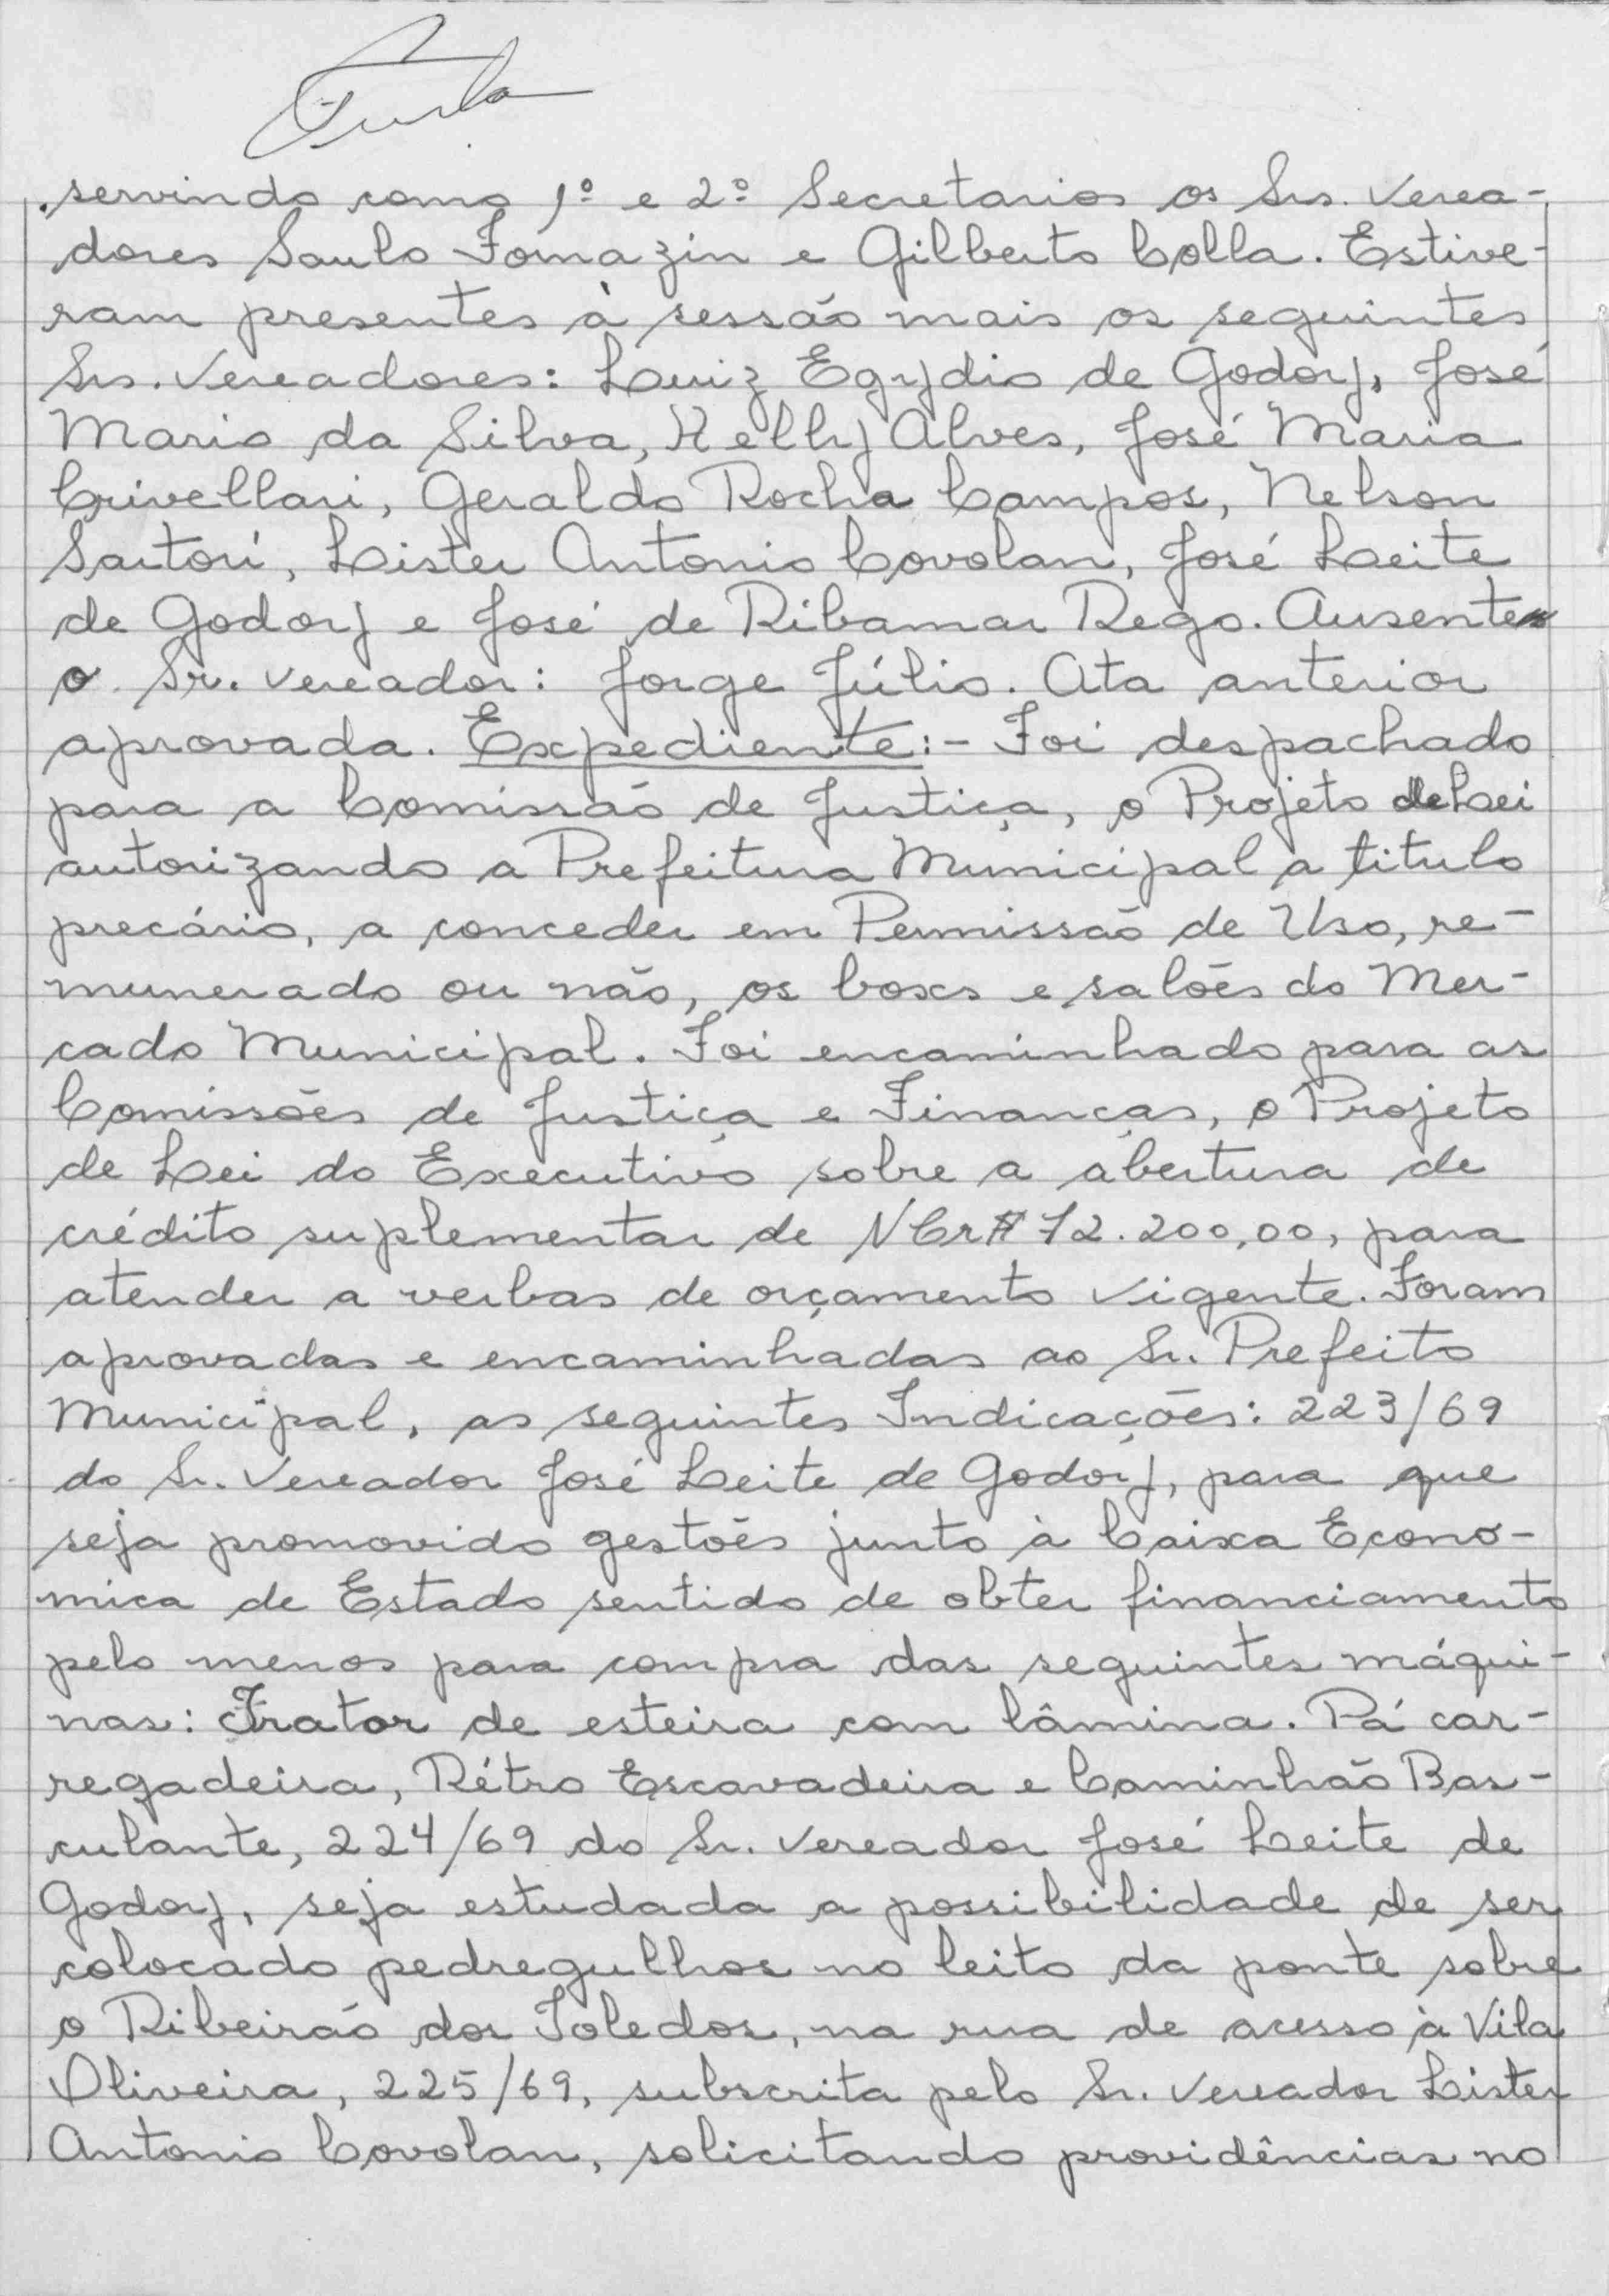 servindo como 1º e 2º Secretarios os Srs. Verea-
dores Saulo Fomazin e Gilberto Colla. Estive-
ram presentes à sessão mais os seguintes
Srs. Vereadores: Luiz Egydio de Godoy, José
Mario da Silva, Kelly Alves, José Maria
Crivellari, Geraldo Rocha Campos, Nelson
Sartori, Lister Antonio Covolan, José Leite
de Godoy e José de Ribamar Rego. Ausente
o Sr. Vereador: Jorge Júlio. Ata anterior
aprovada. Expediente:- Foi despachado
para a Comissão de Justiça, o Projeto de Lei
autorizando a Prefeitura Municipal a titulo
precário, a conceder em Permissão de Uso, re-
munerado ou não, os boxs e salões do Mer-
cado Municipal. Foi encaminhado para as
Comissões de Justiça e Finanças, o Projeto
de Lei do Executivo sobre a abertura de
crédito suplementar de NCr$ 72.200,00, para
atender a verbas de orçamento vigente. Foram
aprovadas e encaminhadas ao Sr. Prefeito
Municipal, as seguintes Indicações: 223/69
do Sr. Vereador José Leite de Godoy, para que
seja promovido gestões junto à Caixa Econo-
mica de Estado sentido de obter financiamento
pelo menos para compra das seguintes máqui-
nas: Trator de esteira com lâmina. Pá car-
regadeira, Rétro Escavadeira e Caminhão Bas-
culante, 224/69 do Sr. Vereador José Leite de
Godoy, seja estudada a possibilidade de ser
colocado pedregulhos no leito da ponte sobre
o Ribeirão dos Toledos, na rua de acesso à Vila
Oliveira, 225/69, subscrita pelo Sr. Vereador Lister
Antonio Covolan, solicitando providências no